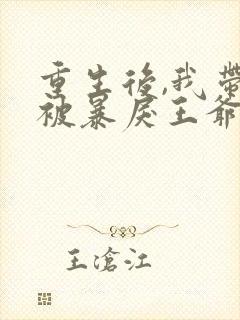 重生後,我帶
被暴戾王爺
王滄江